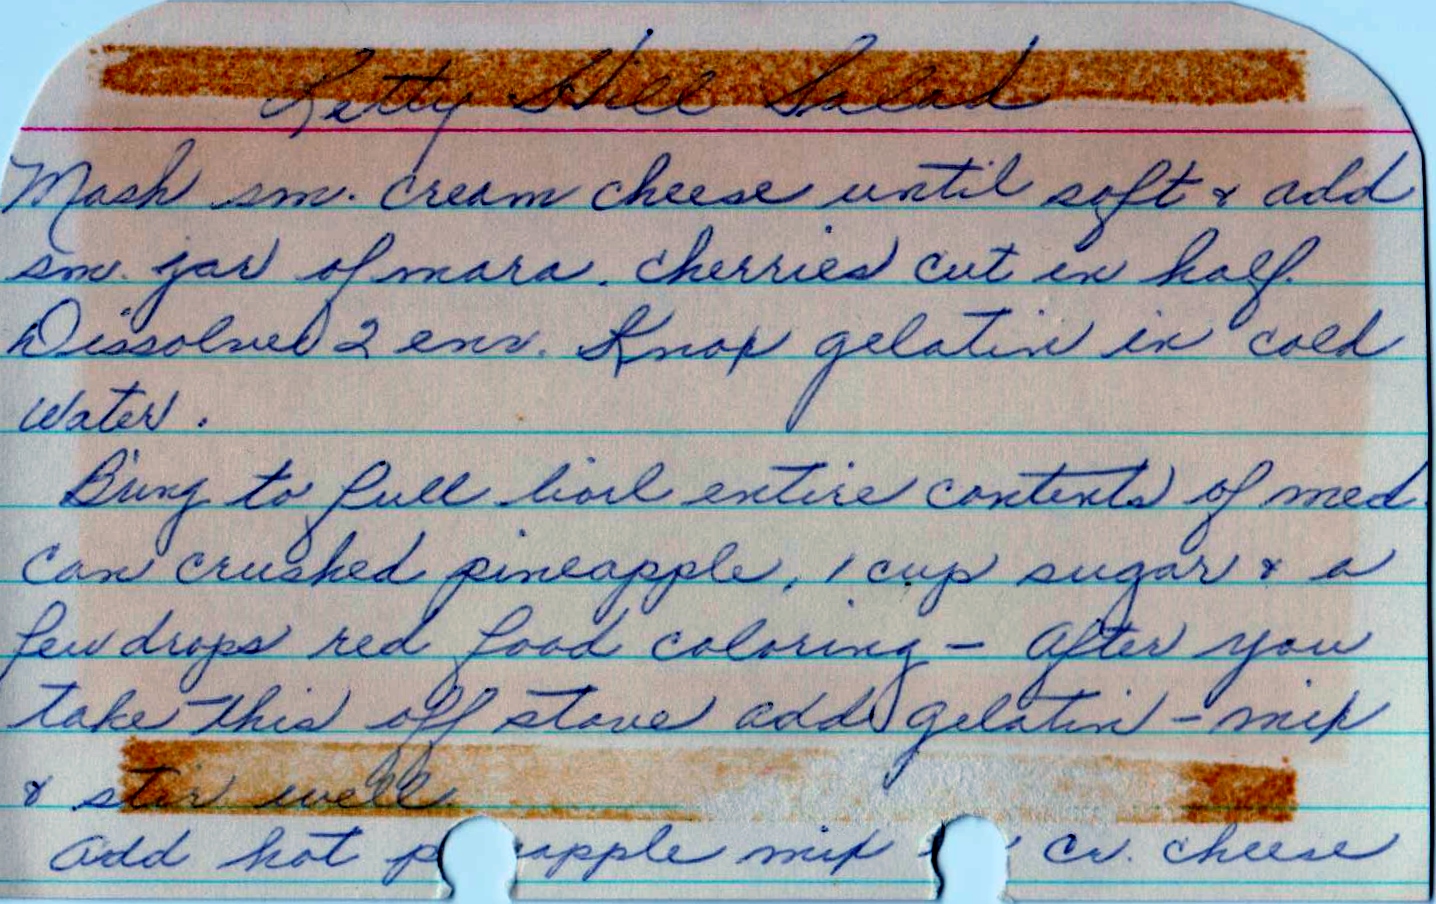 Letty Hill Salad
Mash sm. cream cheese until soft & add
sm. jar of mara. cherries cut in half.
Dissolve 2 env. Knox gelatin in cold
water.
Bring to full boil entire contents of med.
can crushed pineapple, 1 cup sugar & a
few drops red food coloring - After you
take this off stove add gelatin - mix
& stir well.
Add hot p apple mix cr. cheese